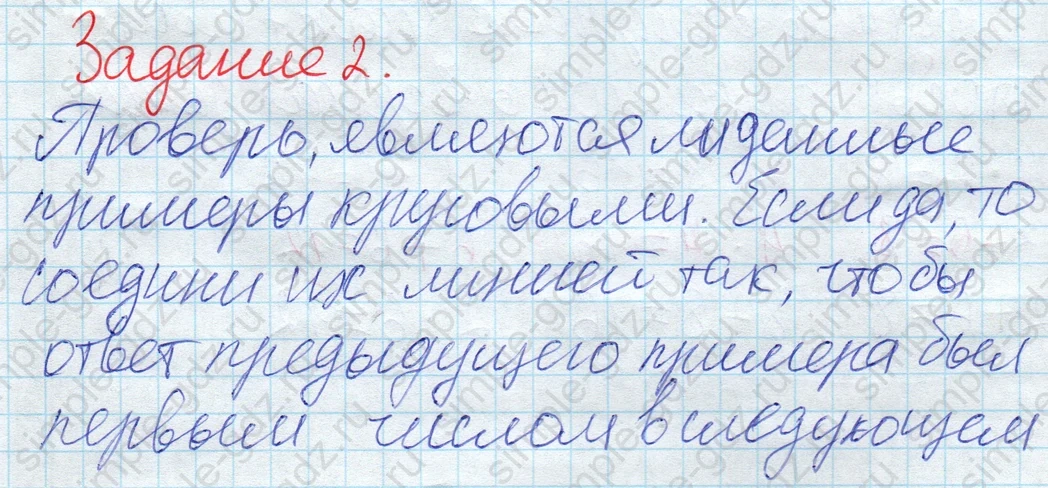 Задание 2.
Проверь, являются ли данные
примеры круговыми. Если да, то
соедини их линией так, чтобы
ответ предыдущего примера был
первым числом в следующем